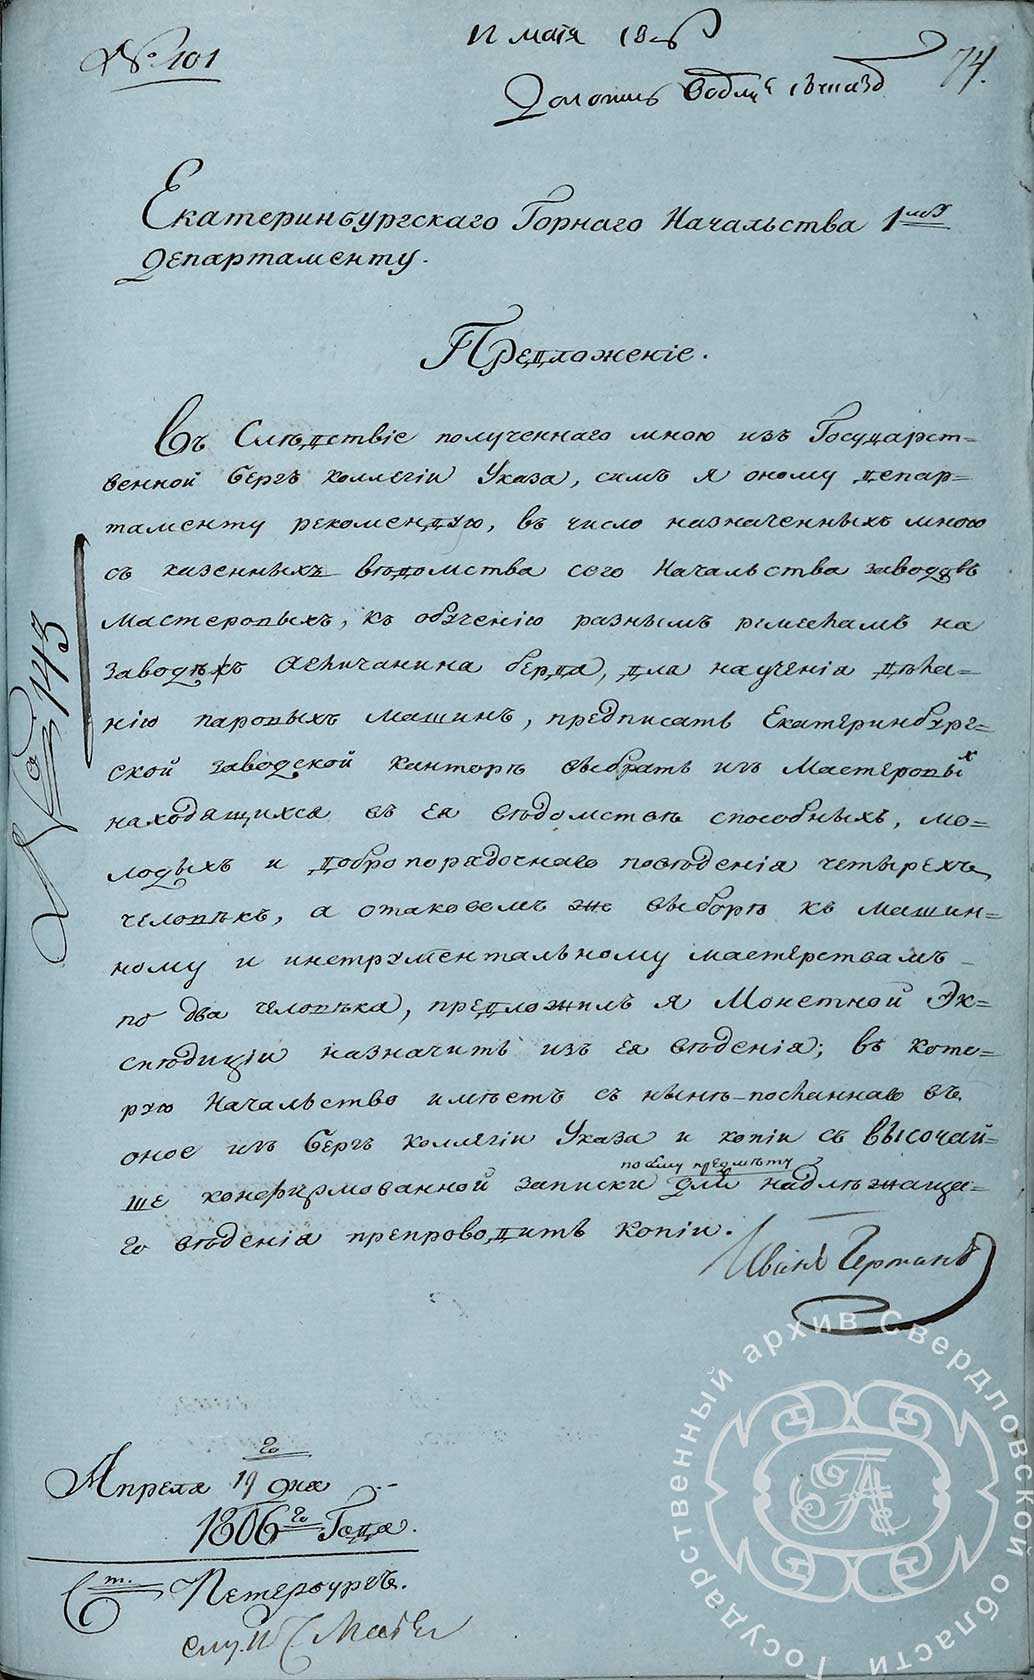 № 101
12 мая 1806
74.
Екатеринбургскаго Горнаго Начальства 1му
Департаменту.
Предложеніе.
Въ Слѣдствіе полученнаго мною изъ Государст-
венной Бергъ Коллегіи Указа, симъ я оному депар-
таменту рекомендую, въ число назначенныхъ мною
съ казенныхъ вѣдомства сего Начальства заводовъ
Мастеровыхъ, къ обученію разнымъ ремесламъ на
заводѣхъ Агличанина берда, для наученія дѣла-
нію паровыхъ машинъ, предписать Екатеринбург-
ской заводской канторѣ выбрать изъ Мастеровых
находящихся въ ея вѣдомствѣ способныхъ, мо-
лодыхъ и добропорядочнаго поведенія четырехъ
человѣкъ, а отаковемъ же выборѣ къ машин-
ному и инструментальному мастерствамъ
по два человѣка, предложилъ я Монетной Эк-
спедиціи назначить изъ ея вѣденія; въ кото-
рую Начальство имѣетъ съ нынѣ-посланнаго въ
оное изъ Бергъ коллегіи Указа и копіи съ высочай-
по сему предмѣту
ше конфирмованной записки для надлѣжаща-
го вѣденія препроводить копіи.
Иванъ Германъ
№ 143
Апреля 19го дня
1806го Года.
Ст. Петербургъ.
Государственный архив Свердловской области
ГА